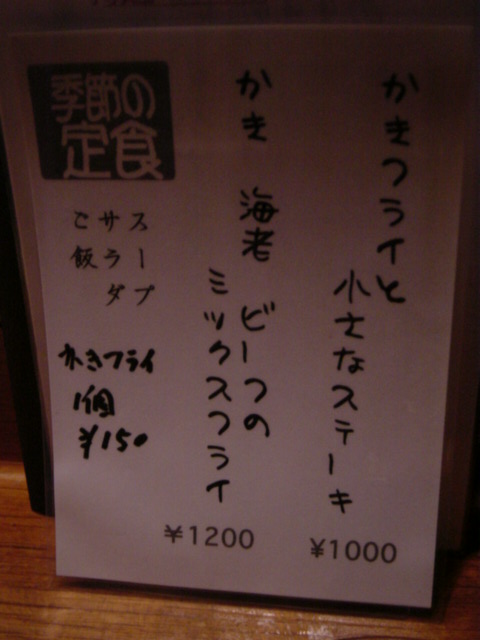 かきフライと
小さなステーキ
¥1000
かき 海老 ビーフの
ミックスフライ
¥1200
季節の
定食
スープ
サラダ
ご飯
かきフライ
1個
¥150